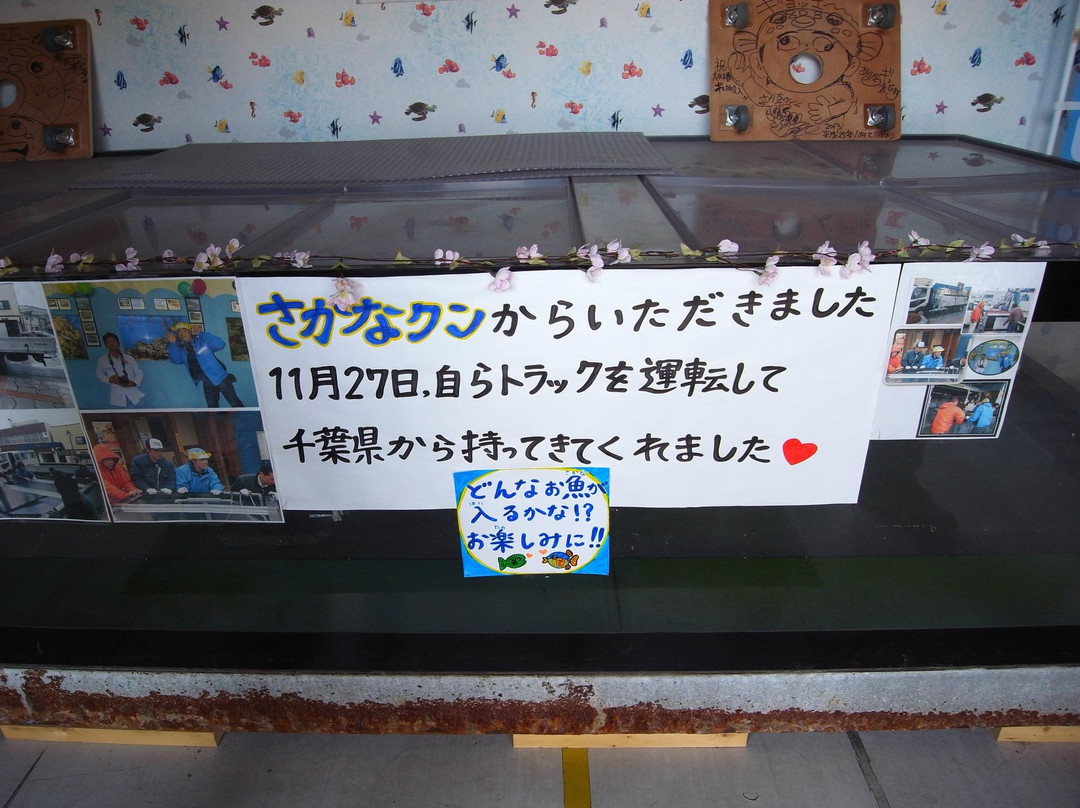 さかなクンからいただきました
11月27日,自らトラックを運転して
千葉県から持ってきてくれました
どんなお魚が
入るかな!?
お楽しみに!!